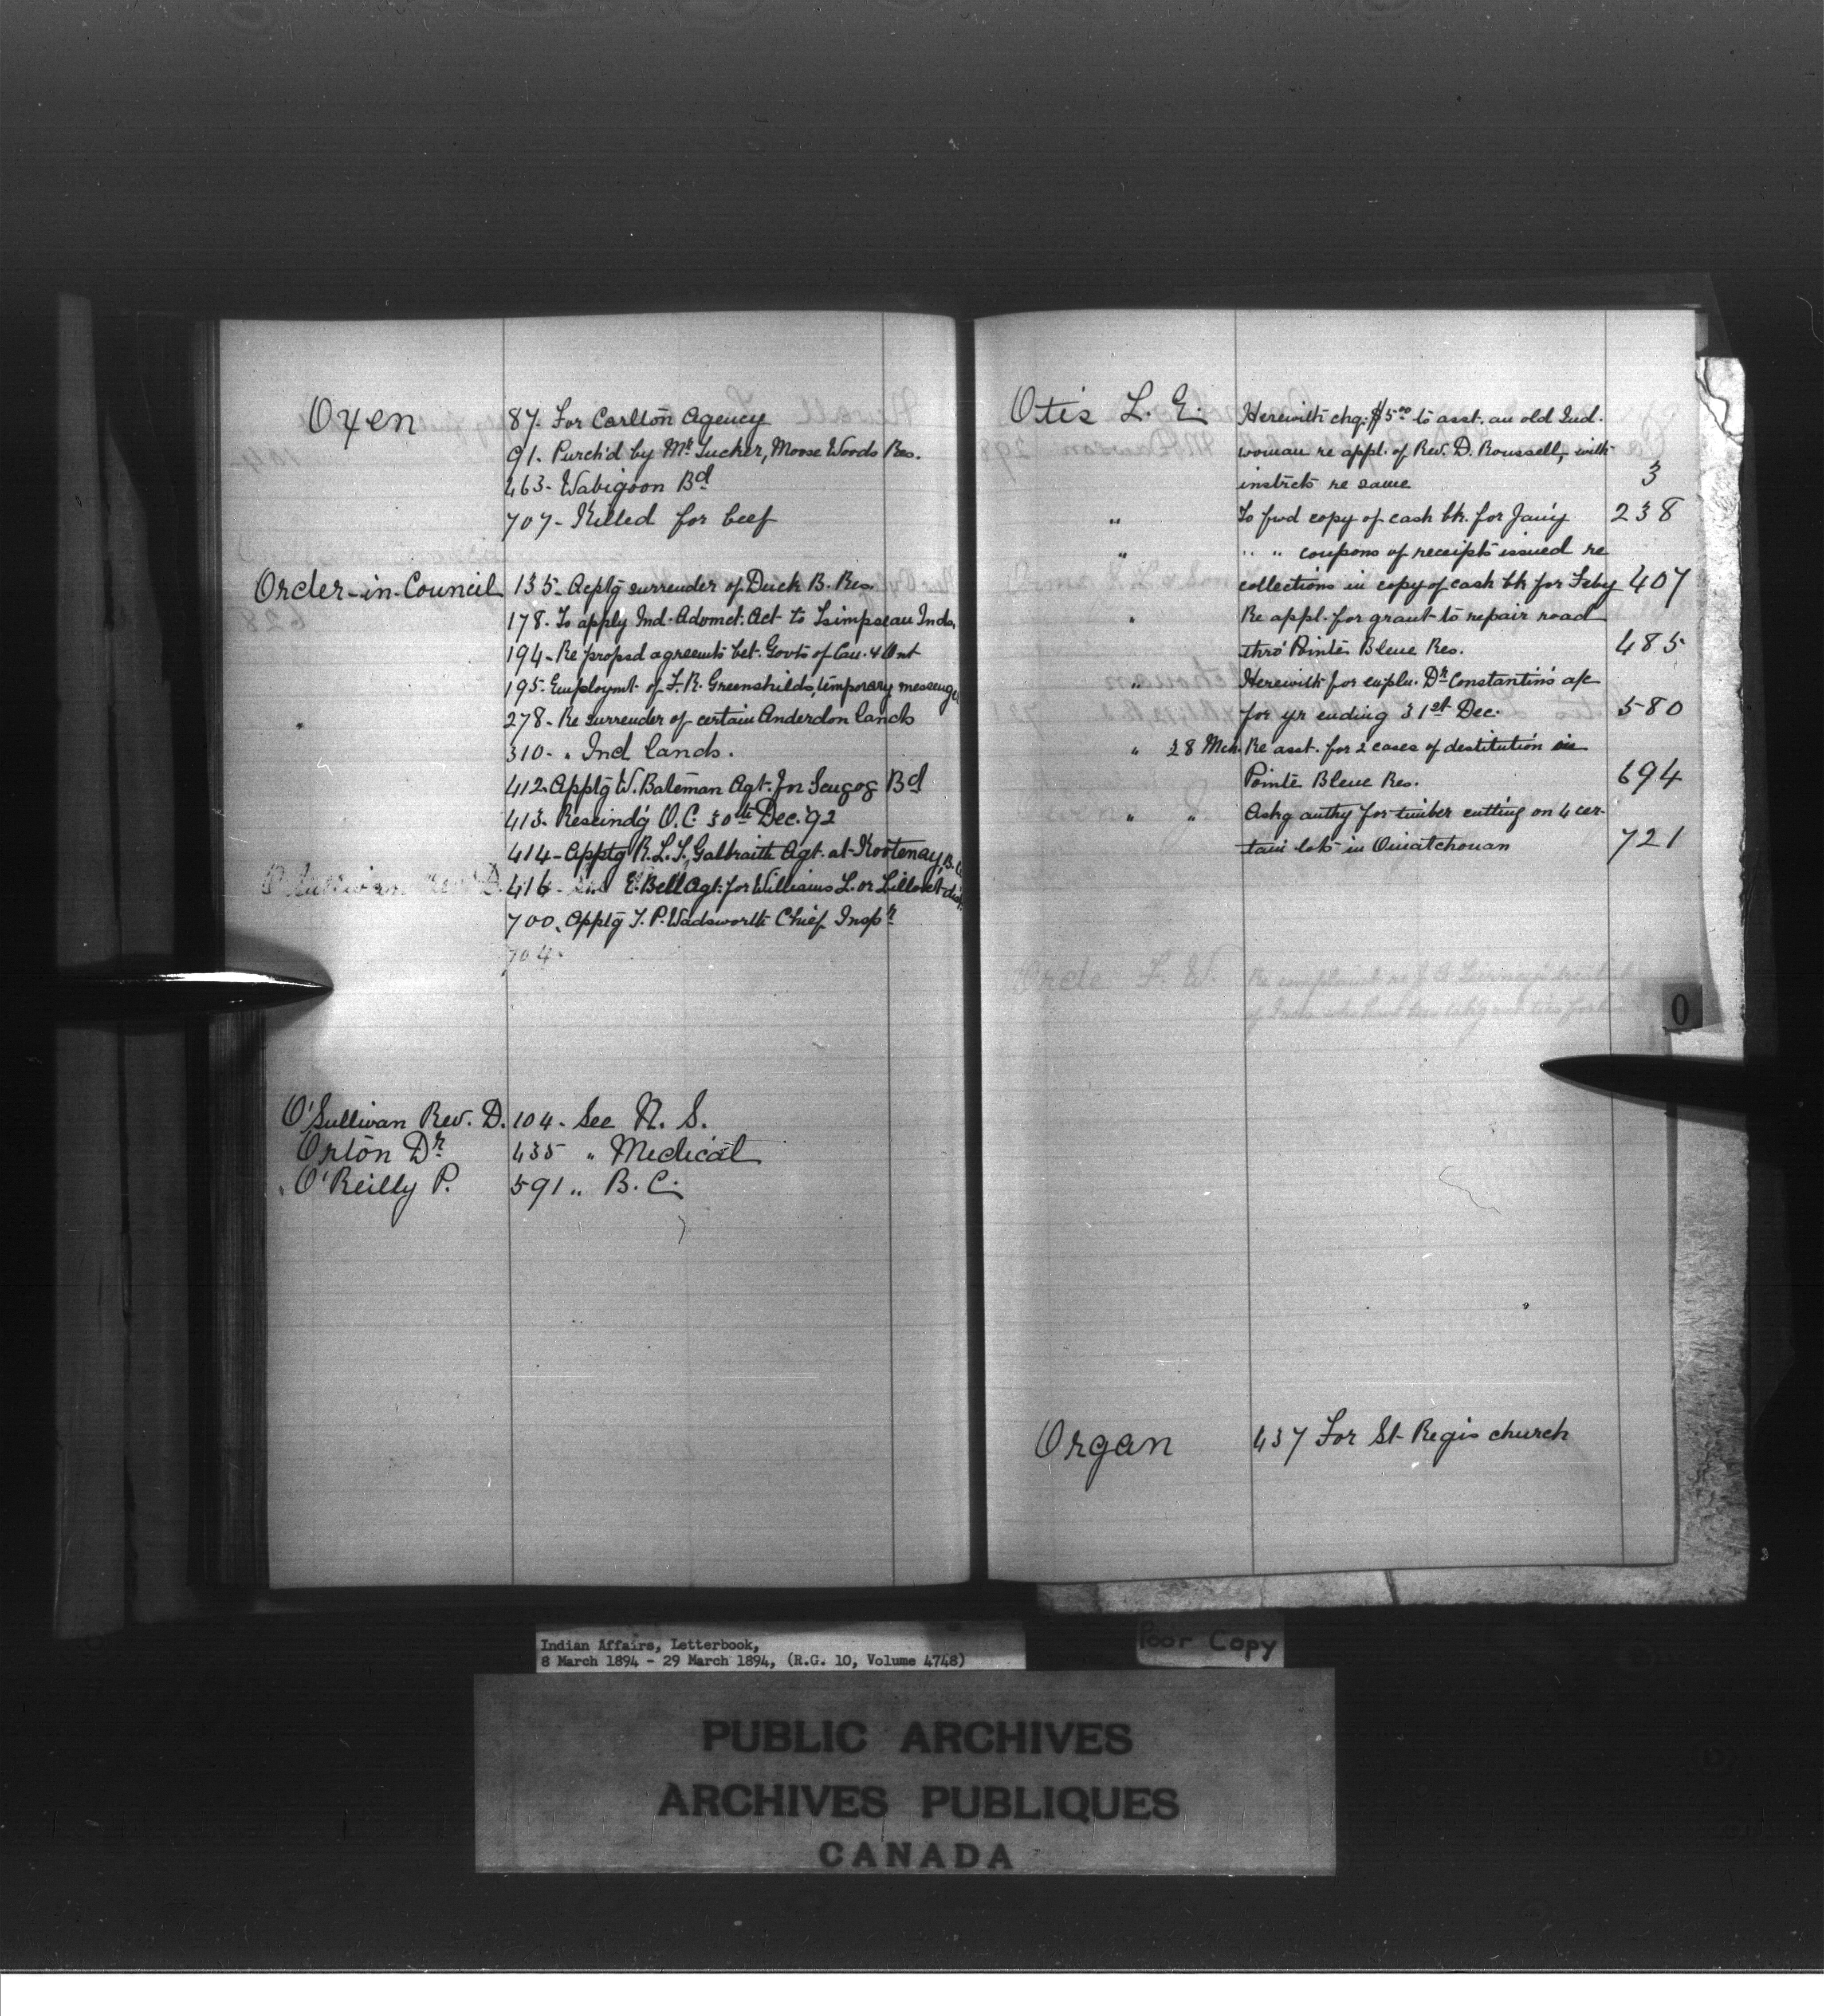 Oxen 87. For Carlton Agency
91. Purch'd by Mr. Tucker, Moose Woods Res.
463- Wabigoon Bd
707- Killed for beef
Order-in-Council 135- Acptg surrender of Duck B. Res.
178. To apply Ind. Advmct. Act to Tsimpseau Inds.
194- Re propsd agreemts bet. Govts of Can. & Ont
195. Employmt of F. R. Greenshields, temporary messenger
278- Re surrender of certain Anderdon lands
310- " Ind lands.
412. Apptg W. Bateman Agt. for Scugog Bd
413- Rescindg O.C. 30th Dec. '92
414- Apptg R.L.T. Galbraith Agt. at Kootenay B.C.
O'Sullivan Rev. D. 416- E. Bell Agt. for Williams L. or Lillooet dist.
700. Apptg T. P. Wadsworth Chief Inspr
704-
O'Sullivan Rev. D. 104- See N. S.
Orton Dr 435 " Medical
O'Reilly P. 591 " B. C.
Otis L. E. Herewith chq. $5.00 to asst. an old Ind.
woman re appl. of Rev. D. Roussell, with
instrcts re same 3
" To fwd copy of cash bk. for Jan'y 238
" " " coupons of receipts issued re
collections in copy of cash bk for Feby 407
" Re appl. for grant to repair road
thro' Pointe Bleue Res. 485
" Herewith for expln. Dr Constantin's a/c
for yr ending 31st Dec. 580
" 28 Mch. Re asst. for 2 cases of destitution in
Pointe Bleue Res. 694
" " Askg authy for timber cutting on 4 cer-
tain lots in Ouiatchouan 721
Orde F. W. Re complaint re J. A.
of Inds who have been
O
Organ 437 For St Regis church
Indian Affairs, Letterbook,
8 March 1894 - 29 March 1894, (R.G. 10, Volume 4748)
Poor Copy
PUBLIC ARCHIVES
ARCHIVES PUBLIQUES
CANADA